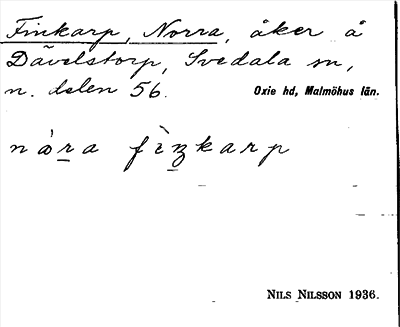 Finkarp, Norra, åker å
Dävelstorp, Svedala sn,
n. delen 56. Oxie hd, Malmöhus län.
nòra fìŋkarp
NILS NILSSON 1936.